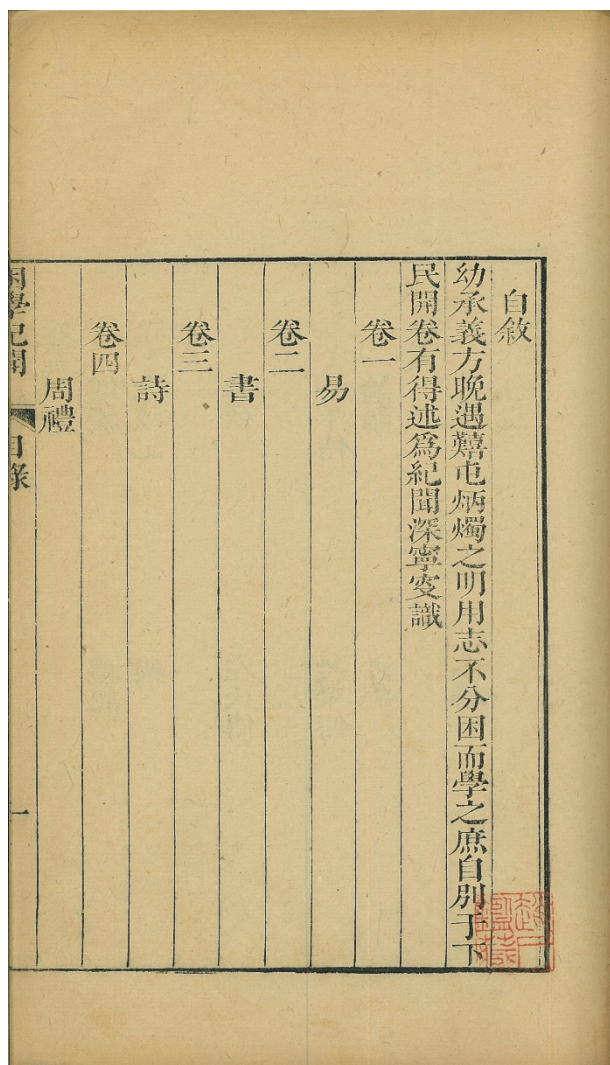 自敘
幼承義方晚遇囏屯炳燭之明用志不分困而學之庶自別于下
民開卷有得述爲紀聞深寧叟識
卷一
易
卷二
書
卷三
詩
卷四
周禮
困學紀聞 目錄 一